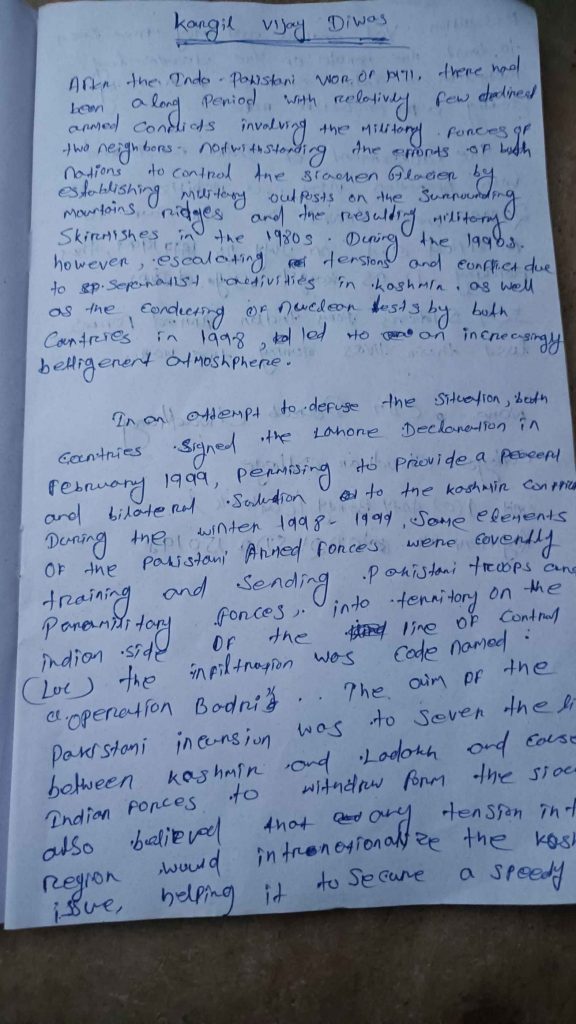 Kargil Vijay Diwas
After the Indo-Pakistani war of 1971, there had
been a long period with relativly few declined
armed conflicts involving the military forces of
two neighbors - notwithstanding the efforts of both
nations to control the siachen Glacier by
establishing military outposts on the surrounding
mountains ridges and the resulting military
Skirmishes in the 1980s. During the 1990s,
however, escalating tensions and conflict due
to separatist activities in kashmir, as well
as the conducting of nuclear tests by both
Countries in 1998, led to an increasingly
belligerent atmoshphere.
In an attempt to defuse the situation, both
countries signed the Lahore Declaration in
February 1999, permising to provide a peaceful
and bilateral Solution to the kashmir conflict
During the winter 1998-1999, Some elements
of the pakistani Armed forces were covertly
training and sending Pakistani troops and
Paramilitary forces, into territory on the
indian side of the line of control
(Loc) the infiltration was code named :
operation Badri". The aim of the
pakistani incursion was to sever the li
between kashmir and Ladakh and cause
Indian forces to withdrw form the siac
also believed that any tension in t
region would intrenationalize the kash
issue, helping it to secure a speedy